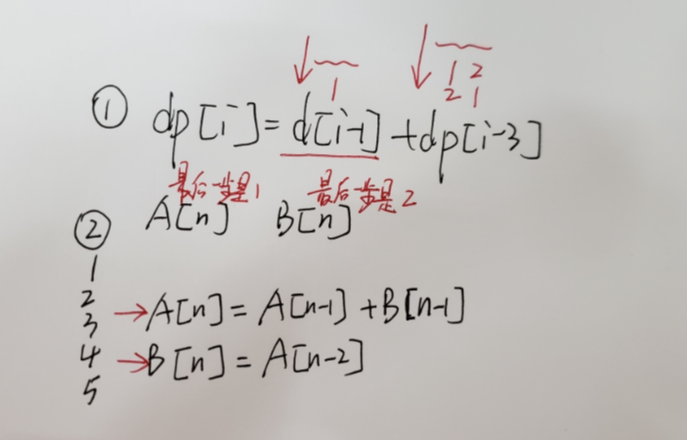 1
1 2
2 1
① dp[i]=d[i-1]+dp[i-3]
最后一步是1 最后一步是2
② A[n] B[n]
1
2
3 →A[n]=A[n-1]+B[n-1]
4 →B[n]=A[n-2]
5